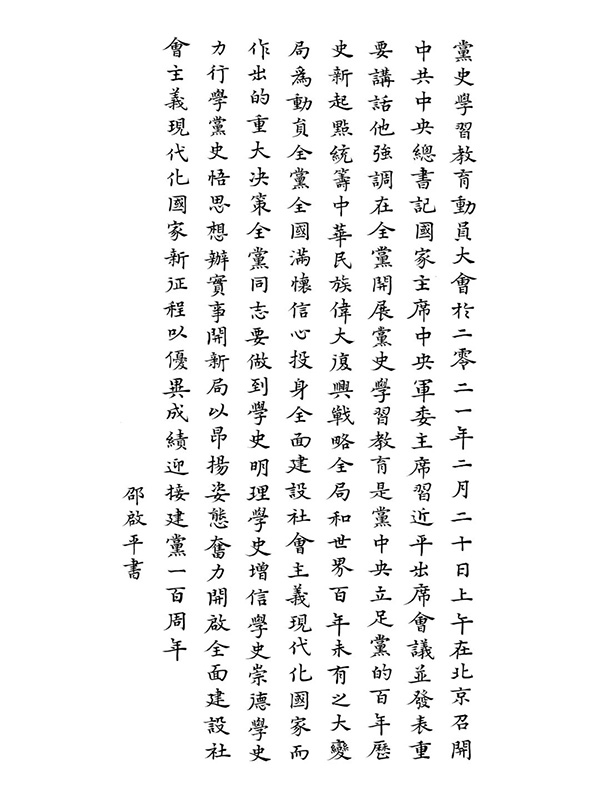 黨史學習教育動員大會於二零二一年二月二十日上午在北京召開
中共中央總書記國家主席中央軍委主席習近平出席會議並發表重
要講話他強調在全黨開展黨史學習教育是黨中央立足黨的百年歷
史新起點統籌中華民族偉大復興戰略全局和世界百年未有之大變
局爲動員全黨全國滿懷信心投身全面建設社會主義現代化國家而
作出的重大決策全黨同志要做到學史明理學史增信學史崇德學史
力行學黨史悟思想辦實事開新局以昂揚姿態奮力開啟全面建設社
會主義現代化國家新征程以優異成績迎接建黨一百周年
邵啟平書